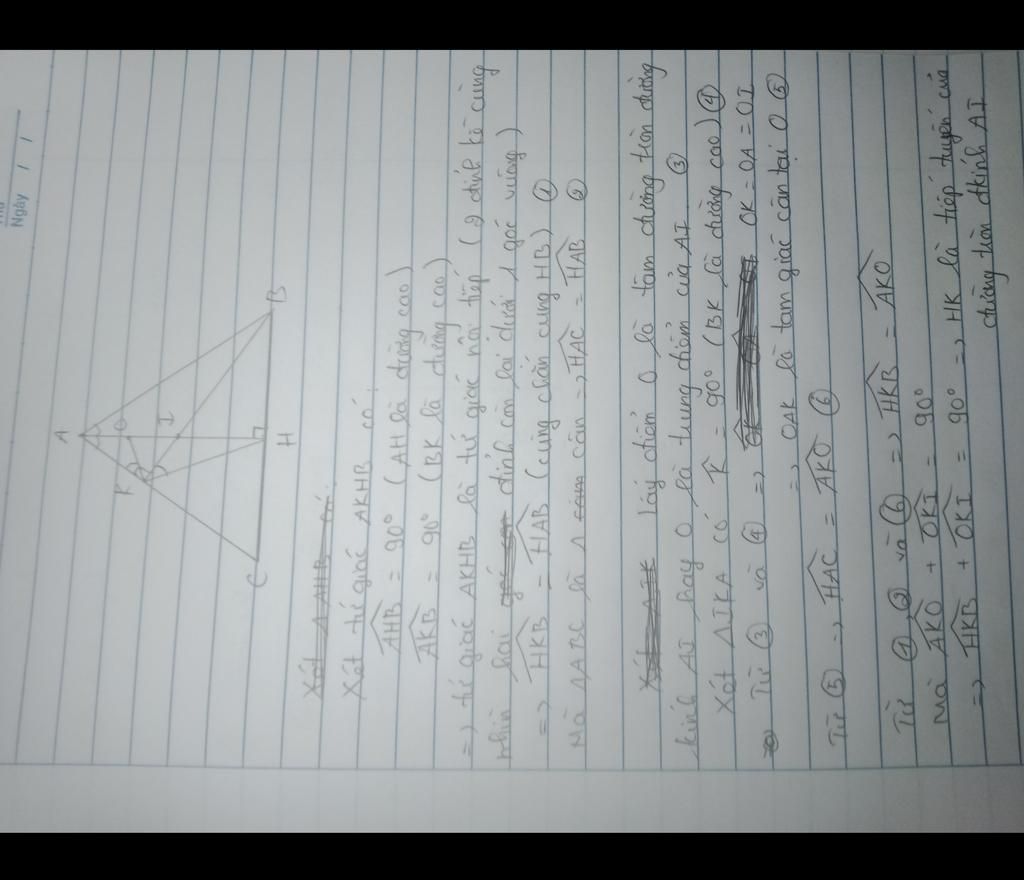 Thứ
Ngày / /
A
K
O
I
C
H
B
Xét Δ AHB có:
Xét tứ giác AKHB có:
AHB = 90° (AH là đường cao)
AKB = 90° (BK là đường cao)
=> tứ giác AKHB là tứ giác nội tiếp (2 đỉnh kề cùng
nhìn hai đỉnh còn lại dưới 1 góc vuông)
=> HKB = HAB (cùng chắn cung HB) ①
Mà ΔABC là Δ cân => HAC = HAB ②
Xét Δ AIK lấy điểm O là tâm đường tròn đường
kính AI hay O là trung điểm của AI ③
Xét ΔIKA có K = 90° (BK là đường cao) ④
Từ ③ và ④ => OK = OA = OI
=> OAK là tam giác cân tại O ⑤
Từ ⑤ => HAC = AKO ⑥
Từ ①, ② và ⑥ => HKB = AKO
Mà AKO + OKI = 90°
=> HKB + OKI = 90° => HK là tiếp tuyến của
đường tròn đkính AI